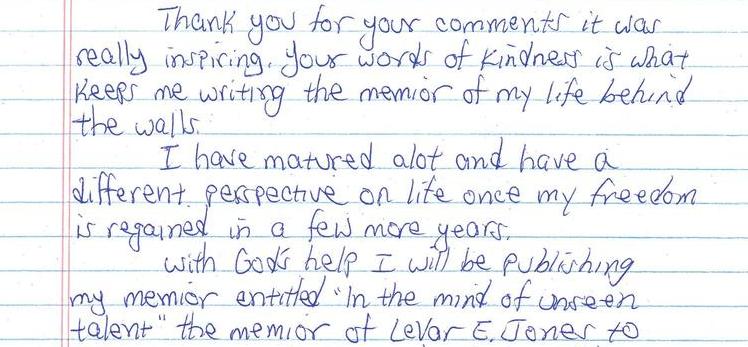 Thank you for your comments it was
really inspiring. Your words of kindness is what
keeps me writing the memior of my life behind
the walls.
I have matured alot and have a
different perspective on life once my freedom
is regained in a few more years.
with God's help I will be publishing
my memior entitled "In the mind of unseen
talent" the memior of LeVar E. Jones to